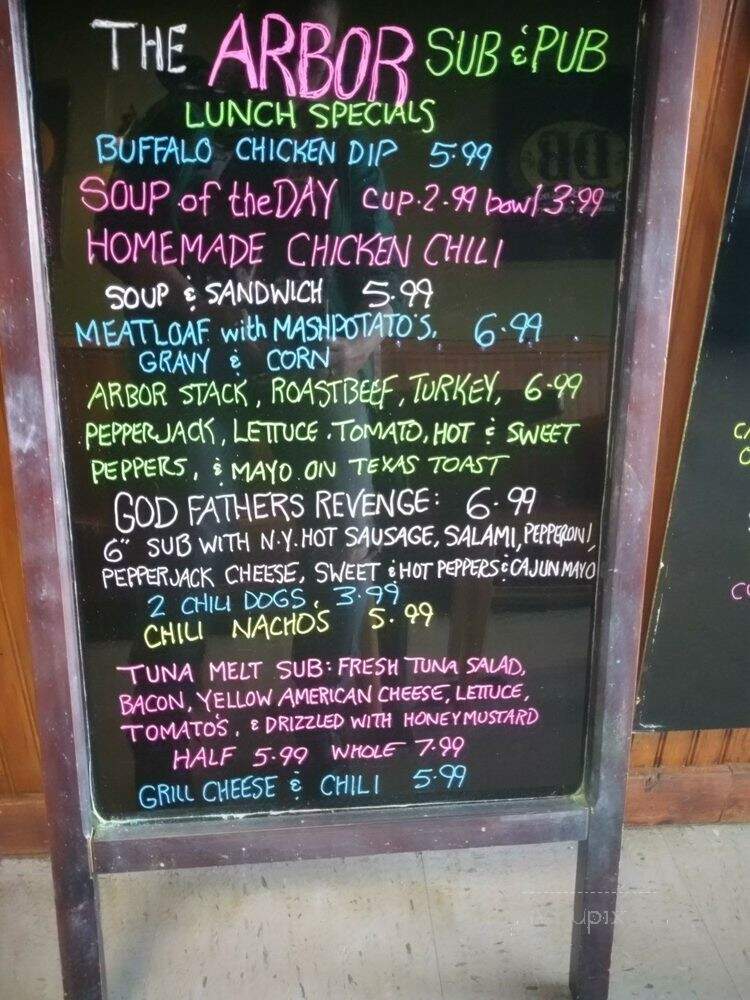 THE ARBOR SUB & PUB
LUNCH SPECIALS
BUFFALO CHICKEN DIP 5.99
SOUP of the DAY cup.2.99 bowl 3.99
HOMEMADE CHICKEN CHILI
SOUP & SANDWICH 5.99
MEATLOAF with MASHPOTATO'S, 6.99
GRAVY & CORN
ARBOR STACK, ROASTBEEF, TURKEY, 6.99
PEPPERJACK, LETTUCE.TOMATO, HOT & SWEET
PEPPERS, & MAYO ON TEXAS TOAST
GOD FATHERS REVENGE: 6.99
6" SUB WITH N.Y. HOT SAUSAGE, SALAMI, PEPPERONI,
PEPPERJACK CHEESE, SWEET & HOT PEPPERS & CAJUN MAYO
2 CHILI DOGS, 3.99
CHILI NACHO'S 5.99
TUNA MELT SUB: FRESH TUNA SALAD,
BACON, YELLOW AMERICAN CHEESE, LETTUCE,
TOMATO'S, & DRIZZLED WITH HONEYMUSTARD
HALF 5.99 WHOLE 7.99
GRILL CHEESE & CHILI 5.99